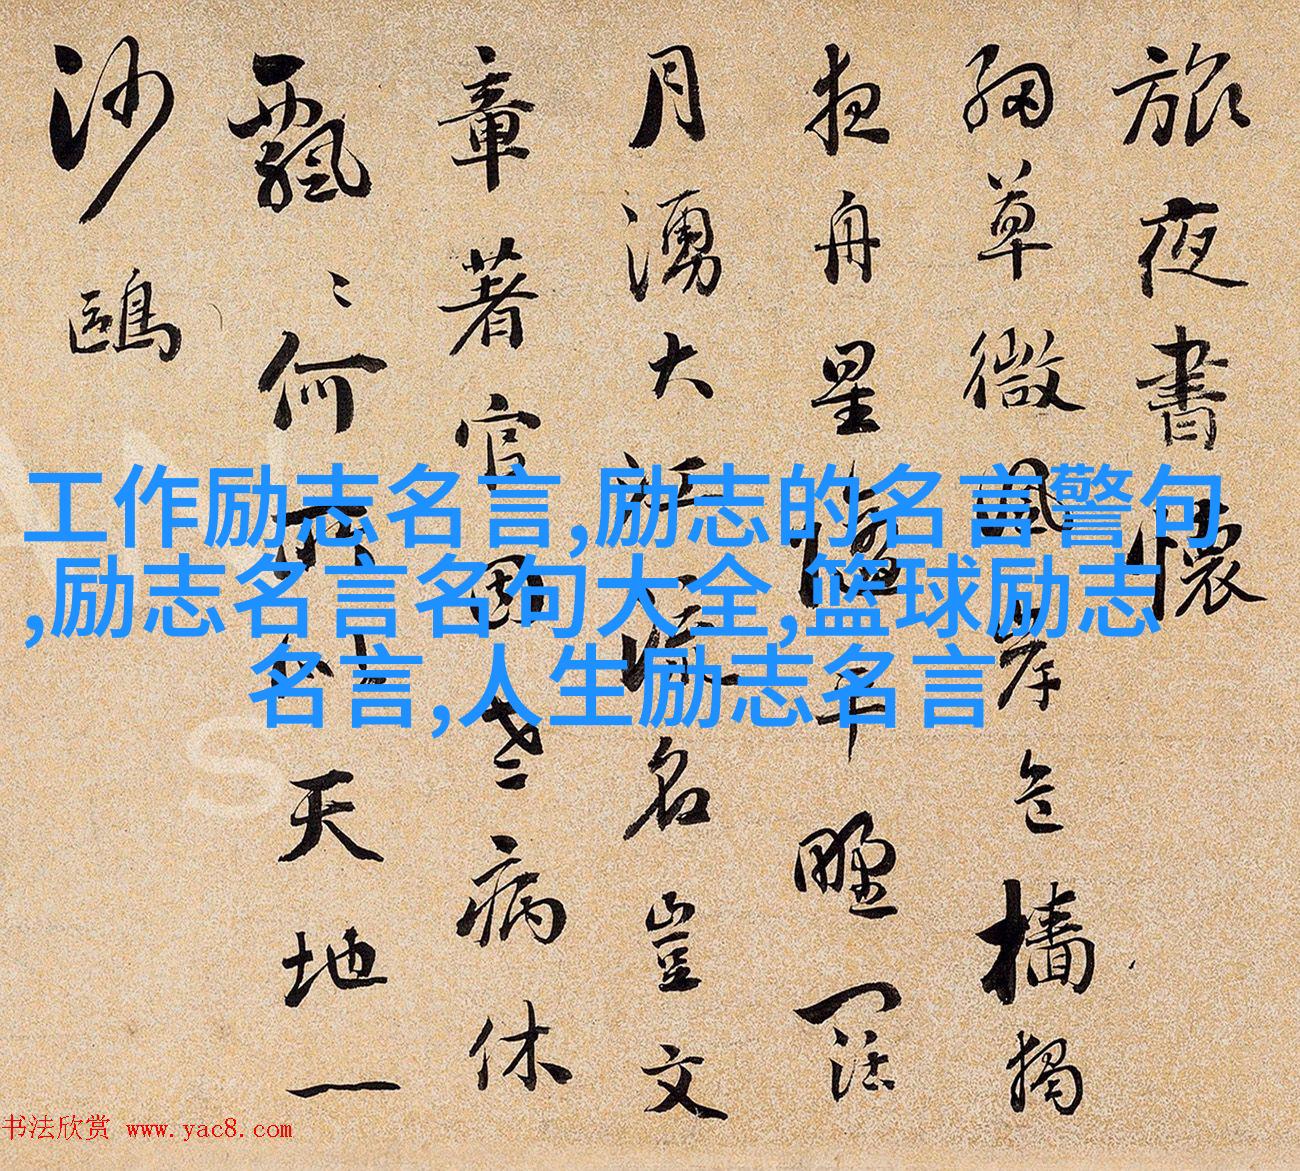 旅夜書懷
細草微風岸危檣獨
夜舟星平野闊
月湧大江流名豈文
章著官因老病休
飄〻何所似天地一
沙鷗
工作励志名言,励志的名言警句
,励志名言名句大全,篮球励志
名言,人生励志名言
书法欣赏 www.yac8.com